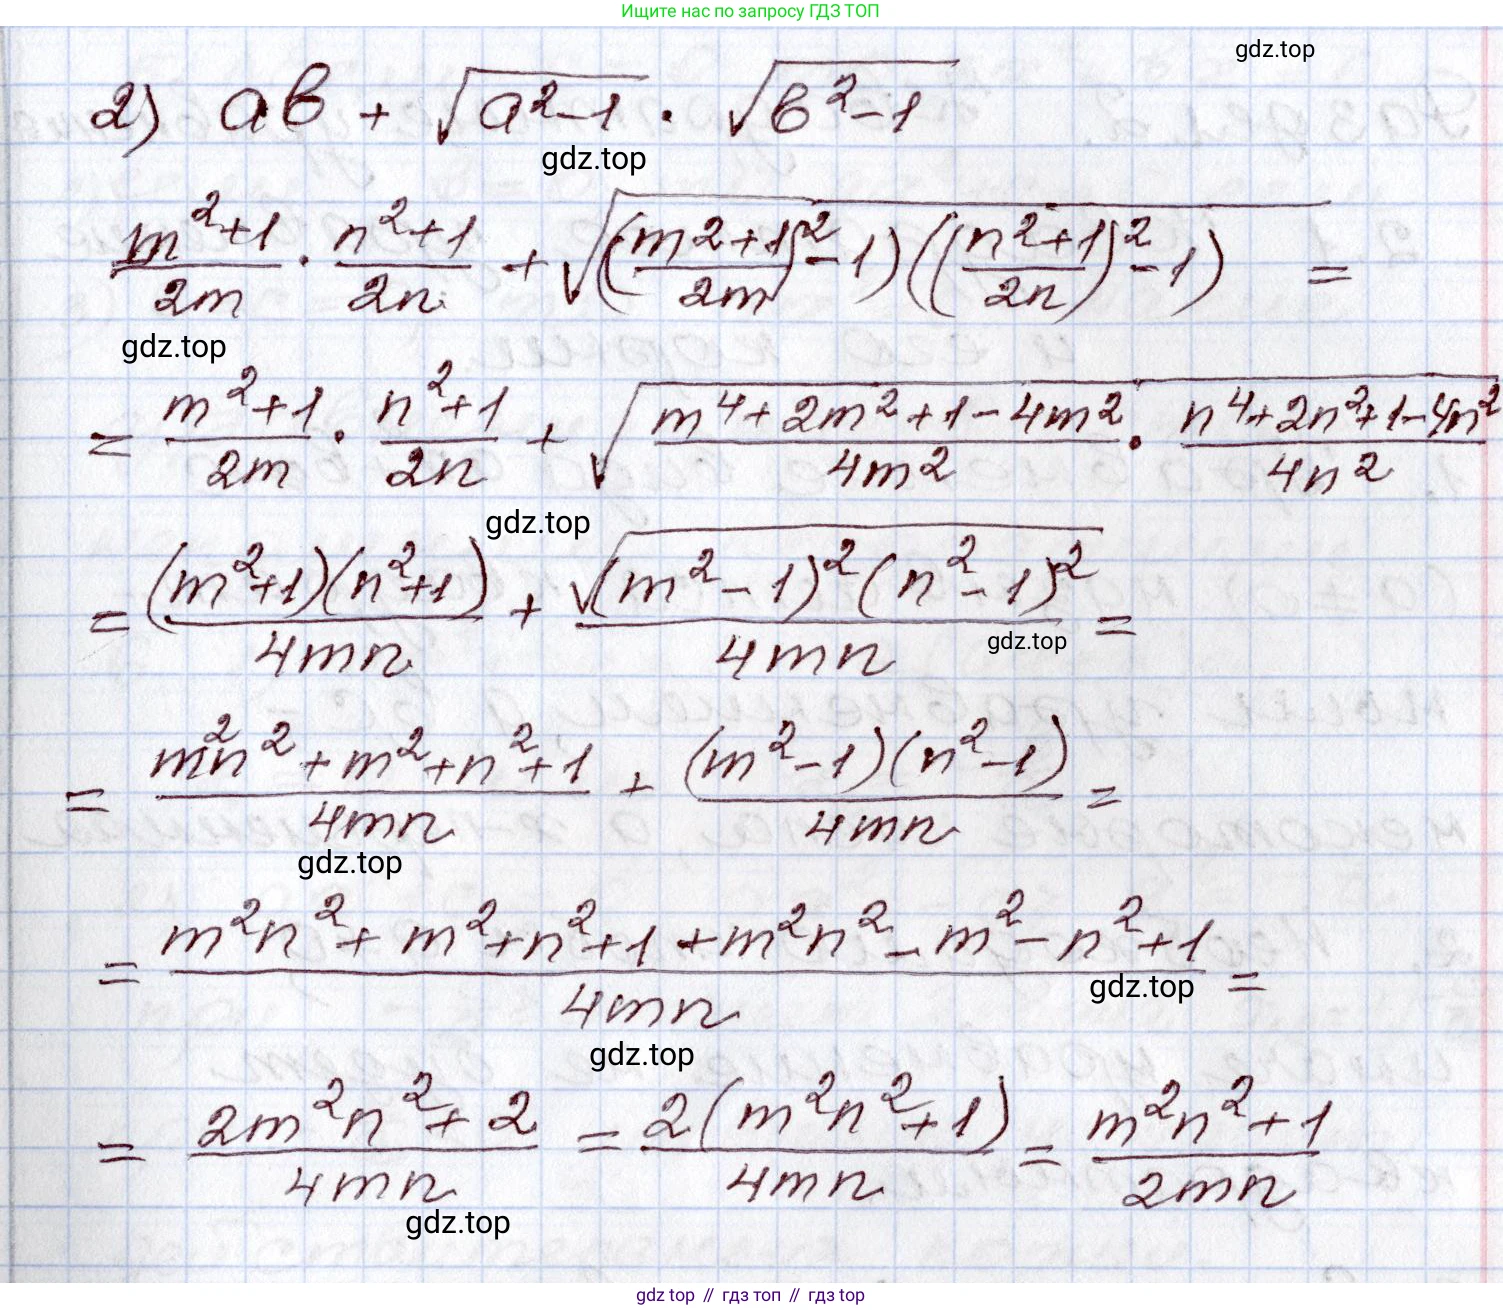 Ищите нас по запросу ГДЗ ТОП
gdz.top
2) ab + √(a²-1) · √(b²-1)
gdz.top
(m²+1)/(2m) · (n²+1)/(2n) + √(((m²+1)/(2m))²-1)(((n²+1)/(2n))²-1) =
gdz.top
= (m²+1)/(2m) · (n²+1)/(2n) + √((m⁴+2m²+1-4m²)/(4m²) · (n⁴+2n²+1-4n²)/(4n²))
gdz.top
= ((m²+1)(n²+1))/(4mn) + √((m²-1)²(n²-1)²)/(4mn) =
gdz.top
= (m²n²+m²+n²+1)/(4mn) + ((m²-1)(n²-1))/(4mn) =
gdz.top
= (m²n²+m²+n²+1+m²n²-m²-n²+1)/(4mn) =
gdz.top
gdz.top
= (2m²n²+2)/(4mn) = (2(m²n²+1))/(4mn) = (m²n²+1)/(2mn)
gdz.top
gdz top // гдз топ // гдз top